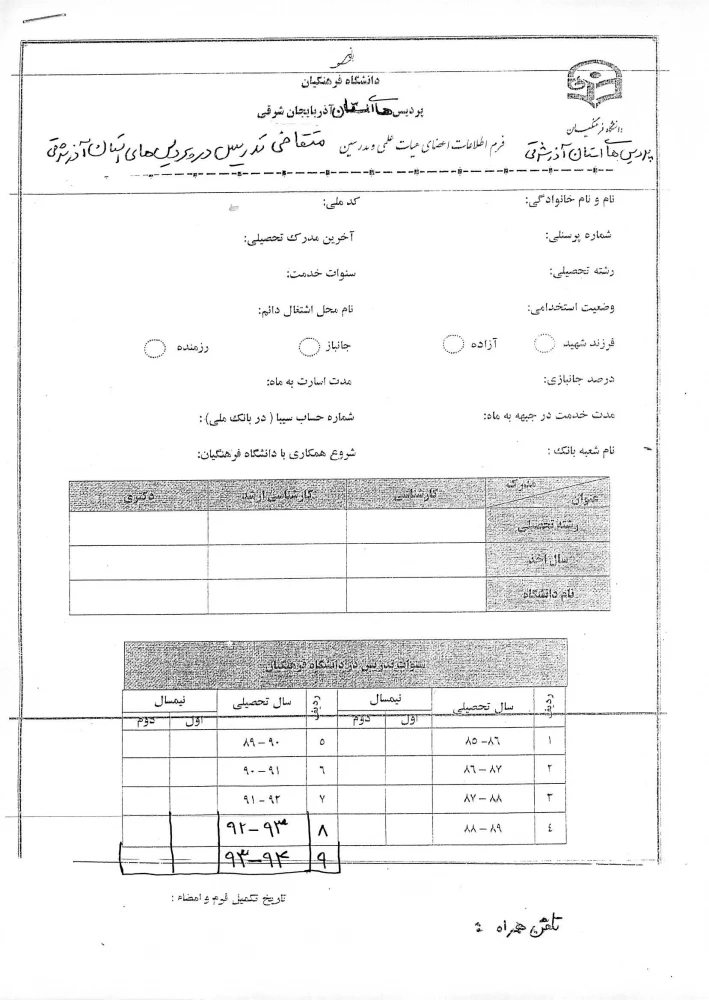 دانشگاه فرهنگیان
پردیس های استان آذربایجان شرقی
دانشگاه فرهنگیان
پردیس های استان آذر شرقی
فرم اطلاعات اعضای هیات علمی و مدرسین متقاضی تدریس در پردیس های استان آذر شرقی
نام و نام خانوادگی: کد ملی:
شماره پرسنلی: آخرین مدرک تحصیلی:
رشته تحصیلی: سنوات خدمت:
وضعیت استخدامی: نام محل اشتغال دائم:
فرزند شهید آزاده جانباز رزمنده
درصد جانبازی: مدت اسارت به ماه:
مدت خدمت در جبهه به ماه: شماره حساب سیبا ( در بانک ملی) :
نام شعبه بانک : شروع همکاری با دانشگاه فرهنگیان:
مدرک عنوان کارشناسی کارشناسی ارشد دکتری
رشته تحصیلی
سال اخذ
نام دانشگاه
سنوات تدریس در دانشگاه فرهنگیان
ردیف سال تحصیلی نیمسال ردیف سال تحصیلی نیمسال
اول دوم اول دوم
۱ ۸۵-۸۶ ۵ ۸۹-۹۰
۲ ۸۶-۸۷ ۶ ۹۰-۹۱
۳ ۸۷-۸۸ ۷ ۹۱-۹۲
۴ ۸۸-۸۹ ۸ ۹۲-۹۳
۹ ۹۳-۹۴
تاریخ تکمیل فرم و امضاء :
تلفن همراه :